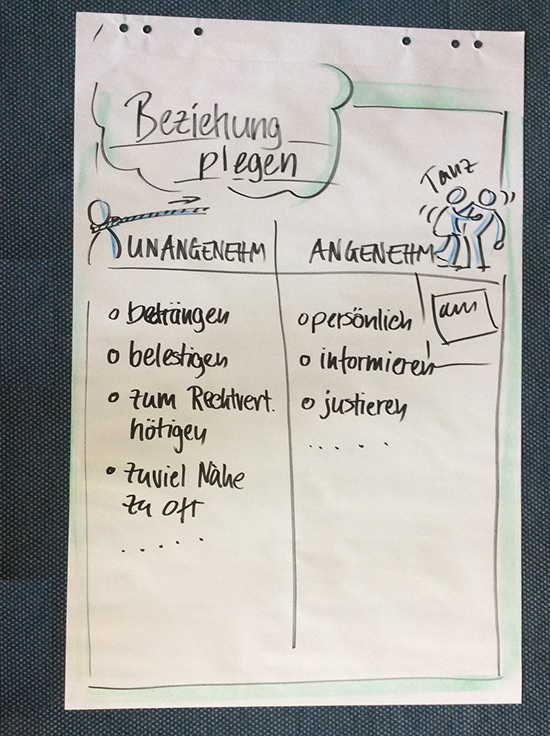 Beziehung
plegen
Tanz
UNANGENEHM
ANGENEHM
beträngen
belestigen
zum Rechtvert.
nötigen
zuviel Nähe
zu oft
.....
persönlich
informieren
justieren
.....